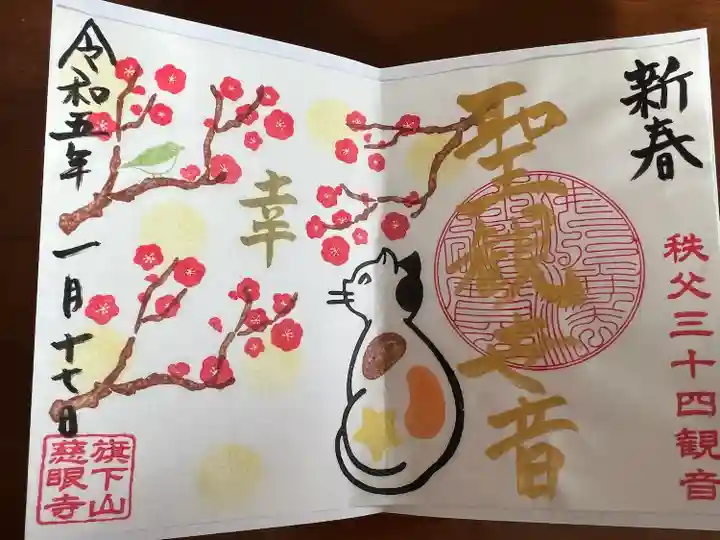 新春
聖観世音
秩父三十四観音
幸
令和五年
一月十七日
旗下山
慈眼寺